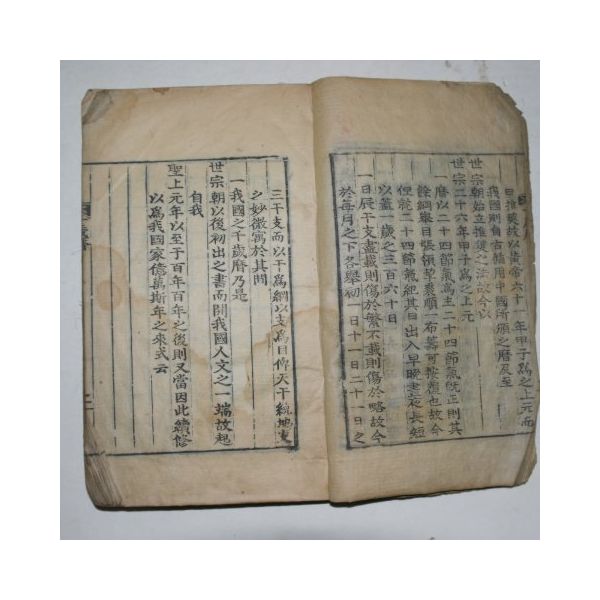 曰推策故以黃帝六十一年甲子爲之上元而
我國則自古循用中國所頒之曆及至
世宗朝始立推鏡之法故今以
世宗二十六年甲子爲之上元
一曆以二十四節氣爲主二十四節氣旣正則其
餘綱舉目張領挈裘順一布籌可按癁也故今
便就二十四節氣紀其日出入早晚晝夜長短
以蓋一歲之三百六十日
一日辰干支盡載則傷於繁不載則傷於略故今
於每月之下各舉初一日十一日二十一日之
三干支而以干爲綱以支爲目俾天干統地支
之妙微寓於其間
一我國之千歲曆乃是
世宗朝以後初出之書而開我國人文之一端故起
自我
聖上元年以至于百年百年之後則又當因此續修
以爲我國家億萬斯年之來式云